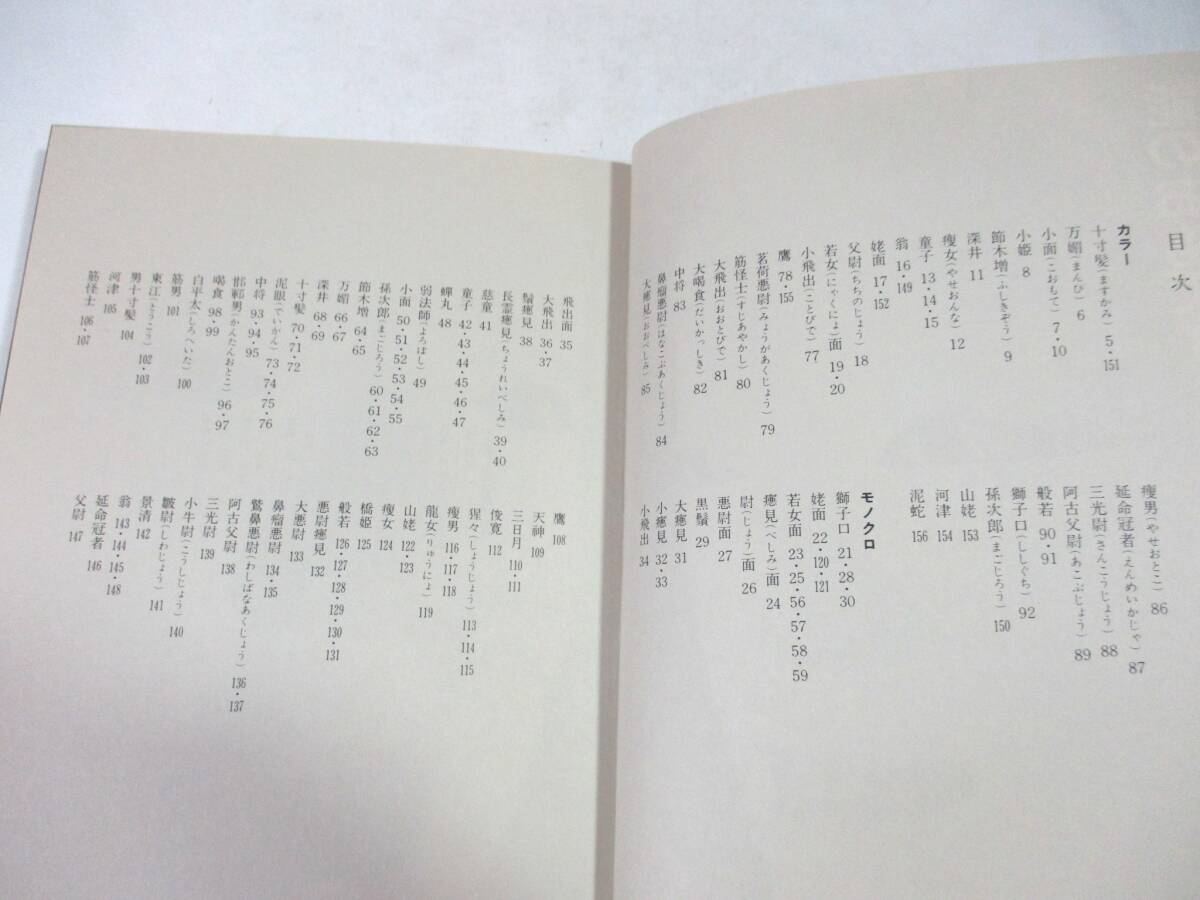 目次
カラー
十寸髪(ますかみ) 5・151
万媚(まんび) 6
小面(こおもて) 7・10
小姫 8
節木増(ふしきぞう) 9
深井 11
瘦女(やせおんな) 12
童子 13・14・15
翁 16・149
姥面 17・152
父尉(ちちのじょう) 18
若女(にゃくにょ)面 19・20
小飛出(ことびで) 77
鷹 78・155
茗荷悪尉(みょうがあくじょう) 79
筋怪士(すじあやかし) 80
大飛出(おおとびで) 81
大喝食(だいかっしき) 82
中将 83
鼻瘤悪尉(はなこぶあくじょう) 84
大癋見(おおべしみ) 85
瘦男(やせおとこ) 86
延命冠者(えんめいかじゃ) 87
三光尉(さんこうじょう) 88
阿古父尉(あこぶじょう) 89
般若 90・91
獅子口(ししぐち) 92
孫次郎(まごじろう) 150
山姥 153
河津 154
泥蛇 156
モノクロ
獅子口 21・28・30
姥面 22・120・121
若女面 23・25・56・57・58・59
癋見(べしみ)面 24
尉(じょう)面 26
悪尉面 27
黒鬚 29
大癋見 31
小癋見 32・33
小飛出 34
飛出面 35
大飛出 36・37
鬚癋見 38
長霊癋見(ちょうれいべしみ) 39・40
慈童 41
童子 42・43・44・45・46・47
蟬丸 48
弱法師(よろぼし) 49
小面 50・51・52・53・54・55
孫次郎(まごじろう) 60・61・62・63
節木増 64・65
万媚 66・67
深井 68・69
十寸髪 70・71・72
泥眼(でいがん) 73・74・75・76
中将 93・94・95
邯鄲男(かんたんおとこ) 96・97
喝食 98・99
白平太(しろへいた) 100
筋男 101
東江(とうこう) 102・103
男十寸髪 104
河津 105
筋怪士 106・107
鷹 108
天神 109
三日月 110・111
俊寛 112
猩々(しょうじょう) 113・114・115
瘦男 116・117・118
龍女(りゅうにょ) 119
山姥 122・123
瘦女 124
橋姫 125
般若 126・127・128・129・130・131
悪尉癋見 132
大悪尉 133
鼻瘤悪尉 134・135
鷲鼻悪尉(わしばなあくじょう) 136・137
阿古父尉 138
三光尉 139
小牛尉(こうしじょう) 140
皺尉(しわじょう) 141
景清 142
翁 143・144・145・148
延命冠者 146
父尉 147